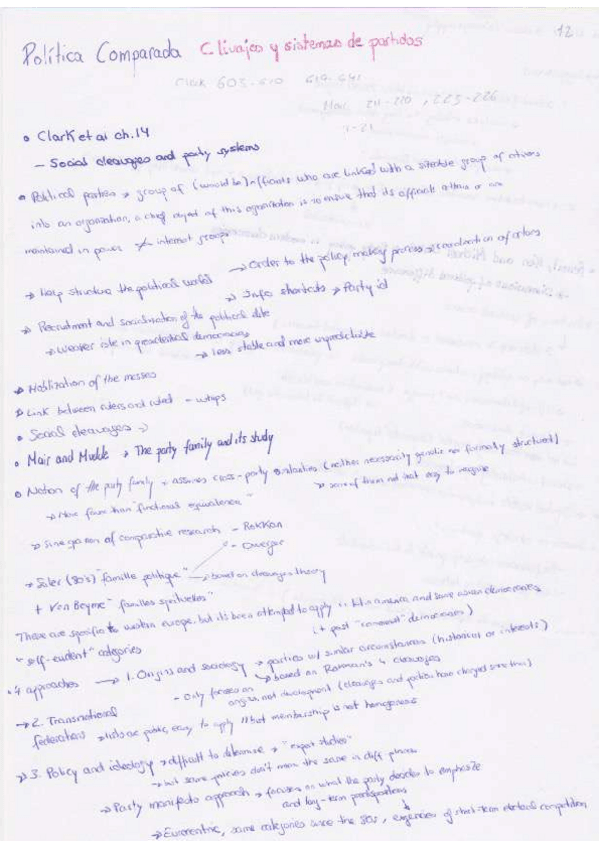 12
Política Comparada Clivajes y sistemas de partidos
Clark 603-610 619-641
Mair 211-220, 223-226
• Clark et al ch.14
- Social cleavages and party systems
• Political parties → group of (would be) officials who are linked with a sizeable group of citizens
into an organization, a chief object of this organization is to ensure that its officials attain or are
maintained in power ≠ interest groups
→ Help structure the political world → Order to the policy making process → coordination of actors
→ Info shortcuts → Party id
→ Recruitment and socialization of the political elite
→ Weaker role in presidential democracies
→ less stable and more unpredictable
→ Mobilization of the masses
→ Link between rulers and ruled - whips
• Social cleavages →
• Mair and Mudde → The party family and its study
• Notion of the party family → assumes cross-party (neither necessarily genetic nor formally structured)
→ some of them not that easy to
→ More than "functional equivalence"
→ Sine qua non of comparative research - Rokkan
- Duverger
→ Seiler (80's) "famille politique" → based on cleavage theory
+ Von Beyme "familles spirituelles"
These are specific to western europe, but it's been attempted to apply in latin america and some asian democracies
(+ post "communist" democracies)
"self-evident" categories
• 4 approaches → 1. Origins and sociology → parties w/ similar circumstances (historical or interests)
→ based on Rokkan's 4 cleavages
- Only focuses on origins, not development (cleavages and parties have changed since then)
→ 2. Transnational
federations → lists are public, easy to apply // but membership is not homogenous
→ 3. Policy and ideology → difficult to determine → "expert studies"
→ but same policies don't mean the same in diff. places
→ Party manifesto approach → focuses on what the party decides to emphasize
and long-term
→ Eurocentric, same categories since the 80s, exigencies of short-term electoral competition